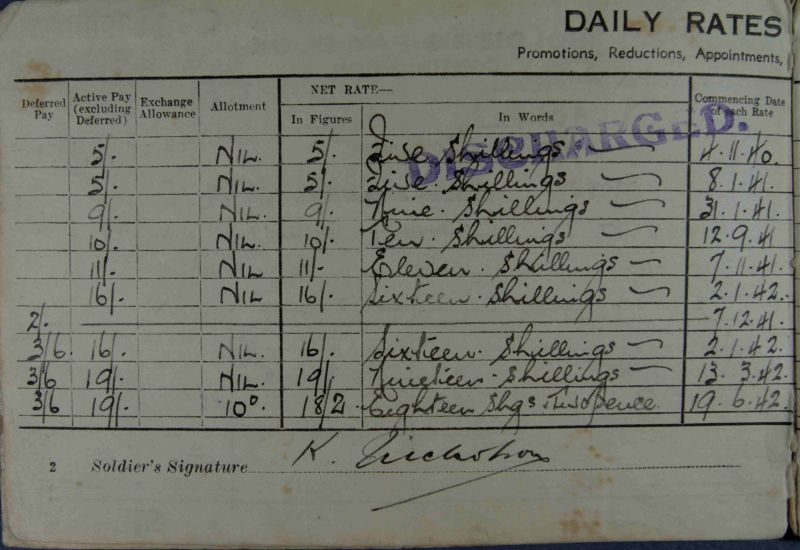 DAILY RATES
Promotions, Reductions, Appointments,
Deferred Pay Active Pay (excluding Deferred) Exchange Allowance Allotment NET RATE— In Figures In Words Commencing Date of each Rate
DISCHARGED.
5/. NIL. 5/. Five Shillings 4.11.40.
5/. NIL. 5/. Five Shillings 8.1.41.
9/. NIL. 9/. Nine Shillings 31.1.41.
10/. NIL. 10/. Ten Shillings 12.9.41
11/. NIL 11/- Eleven Shillings 7.11.41.
16/. NIL 16/. Sixteen Shillings 2.1.42.
2/. 7.12.41.
3/6 16/. NIL. 16/. Sixteen Shillings 2.1.42.
3/6 19/. NIL. 19/. Nineteen Shillings 13.3.42.
3/6 19/. 10D. 18/2 Eighteen Shgs Twopence 19.6.42.
2 Soldier's Signature K. Nicholson